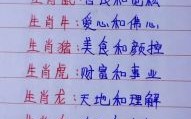 生肖牛：爱心和佛心
生肖猪：美食和颜控
生肖虎：财富和事业
生肖龙：天地和理解